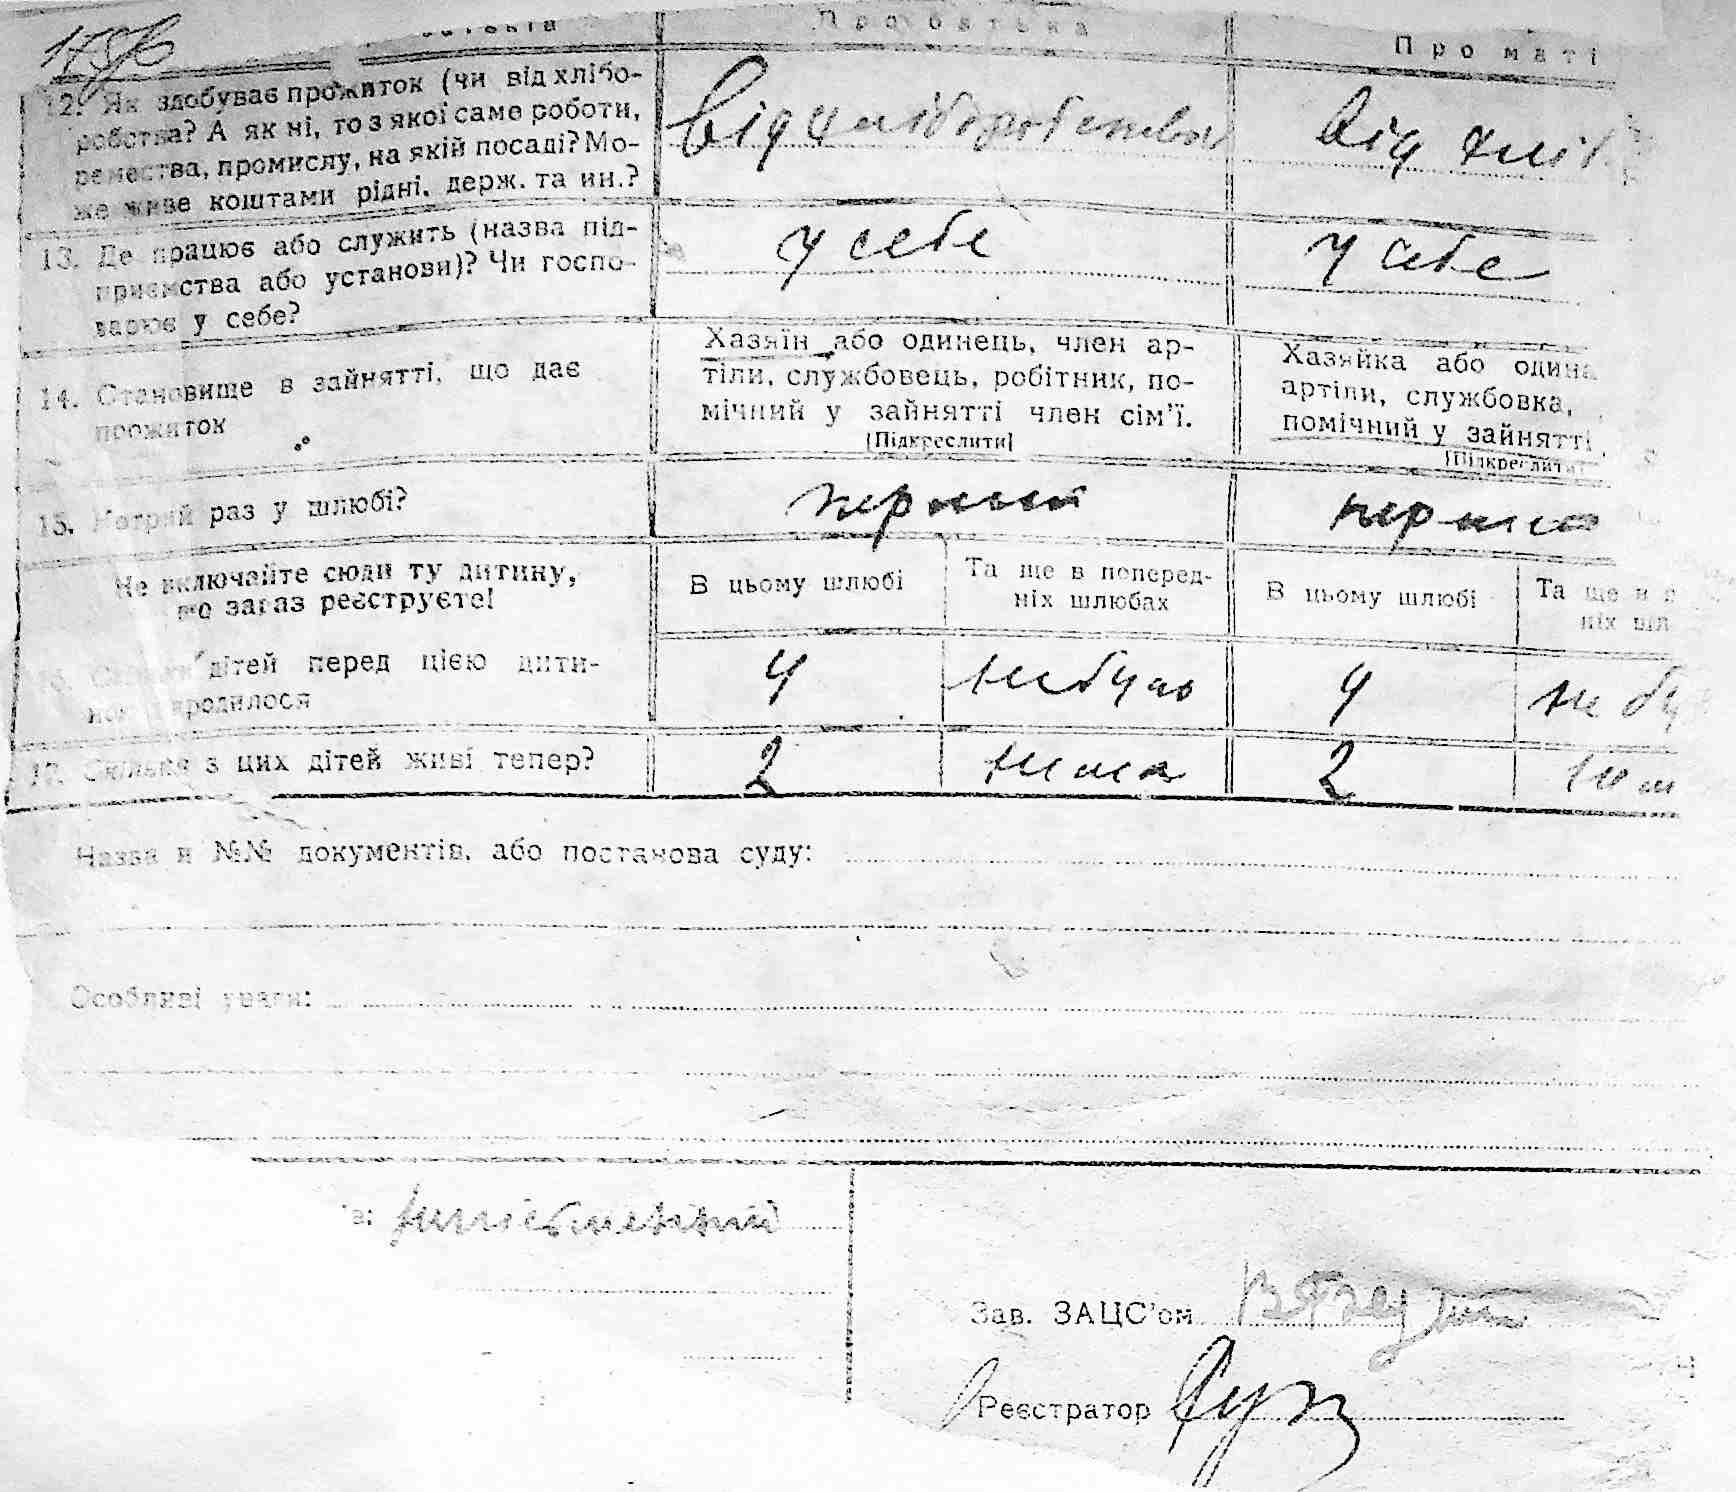 Про батька
Про маті
12. Як здобуває прожиток (чи від хлібо-
робства? А як ні, то з якоі саме роботи,
ремества, промислу, на якій посаді? Мо-
же живе коштами рідні, держ. та ин.?
від хліборобства
від хліб
13. Де працює або служить (назва під-
приємства або установи)? Чи госпо-
варює у себе?
у себе
у себе
14. Становище в зайнятті, що дає
прожиток
Хазяїн або одинець, член ар-
тіли, службовець, робітник, по-
мічний у зайнятті член сім'ї.
[Підкреслити]
Хазяйка або одина
артіли, службовка,
помічний у зайнятті
[Підкреслити]
15. Котрий раз у шлюбі?
перший
перший
Не включайте сюди ту дитину,
що зараз реєструєте!
В цьому шлюбі
Та ще в поперед-
ніх шлюбах
В цьому шлюбі
Та ще в п
ніх шл
16. Скільки дітей перед цією дити-
ною народилося
4
не було
4
не бу
17. Скільки з цих дітей живі тепер?
2
нема
2
нем
Назва й №№ документів, або постанова суду:
Особливі уваги:
Зав. ЗАЦС'ом
Реєстратор